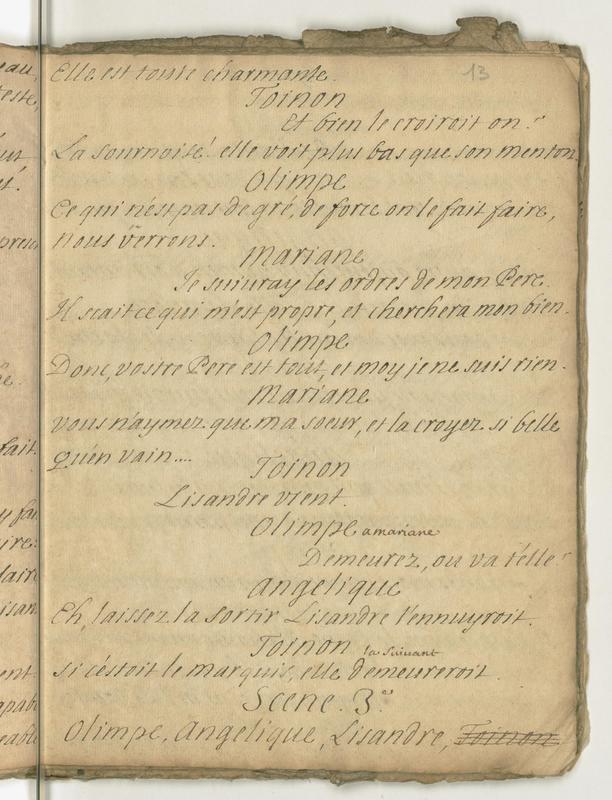 13
Elle est toute charmante.
Toinon
et bien le croiroit on?
La sournoise! elle voit plus bas que son menton.
Olimpe
Ce qui n'est pas de gré, de force on le fait faire,
nous verrons.
Mariane
Je suivray les ordres de mon Pere.
Il scait ce qui m'est propre, et cherchera mon bien.
Olimpe
Donc, vostre Pere est tout, et moy je ne suis rien.
Mariane
vous n'aymez que ma soeur, et la croyez si belle
qu'en vain....
Toinon
Lisandre vient.
Olimpe a mariane
Demeurez, ou va t'elle?
Angelique
Eh, laissez la sortir Lisandre l'ennuyroit.
Toinon la suivant
si c'éstoit le marquis, elle demeureroit.
Scene. 3.e
Olimpe, Angelique, Lisandre, Toinon